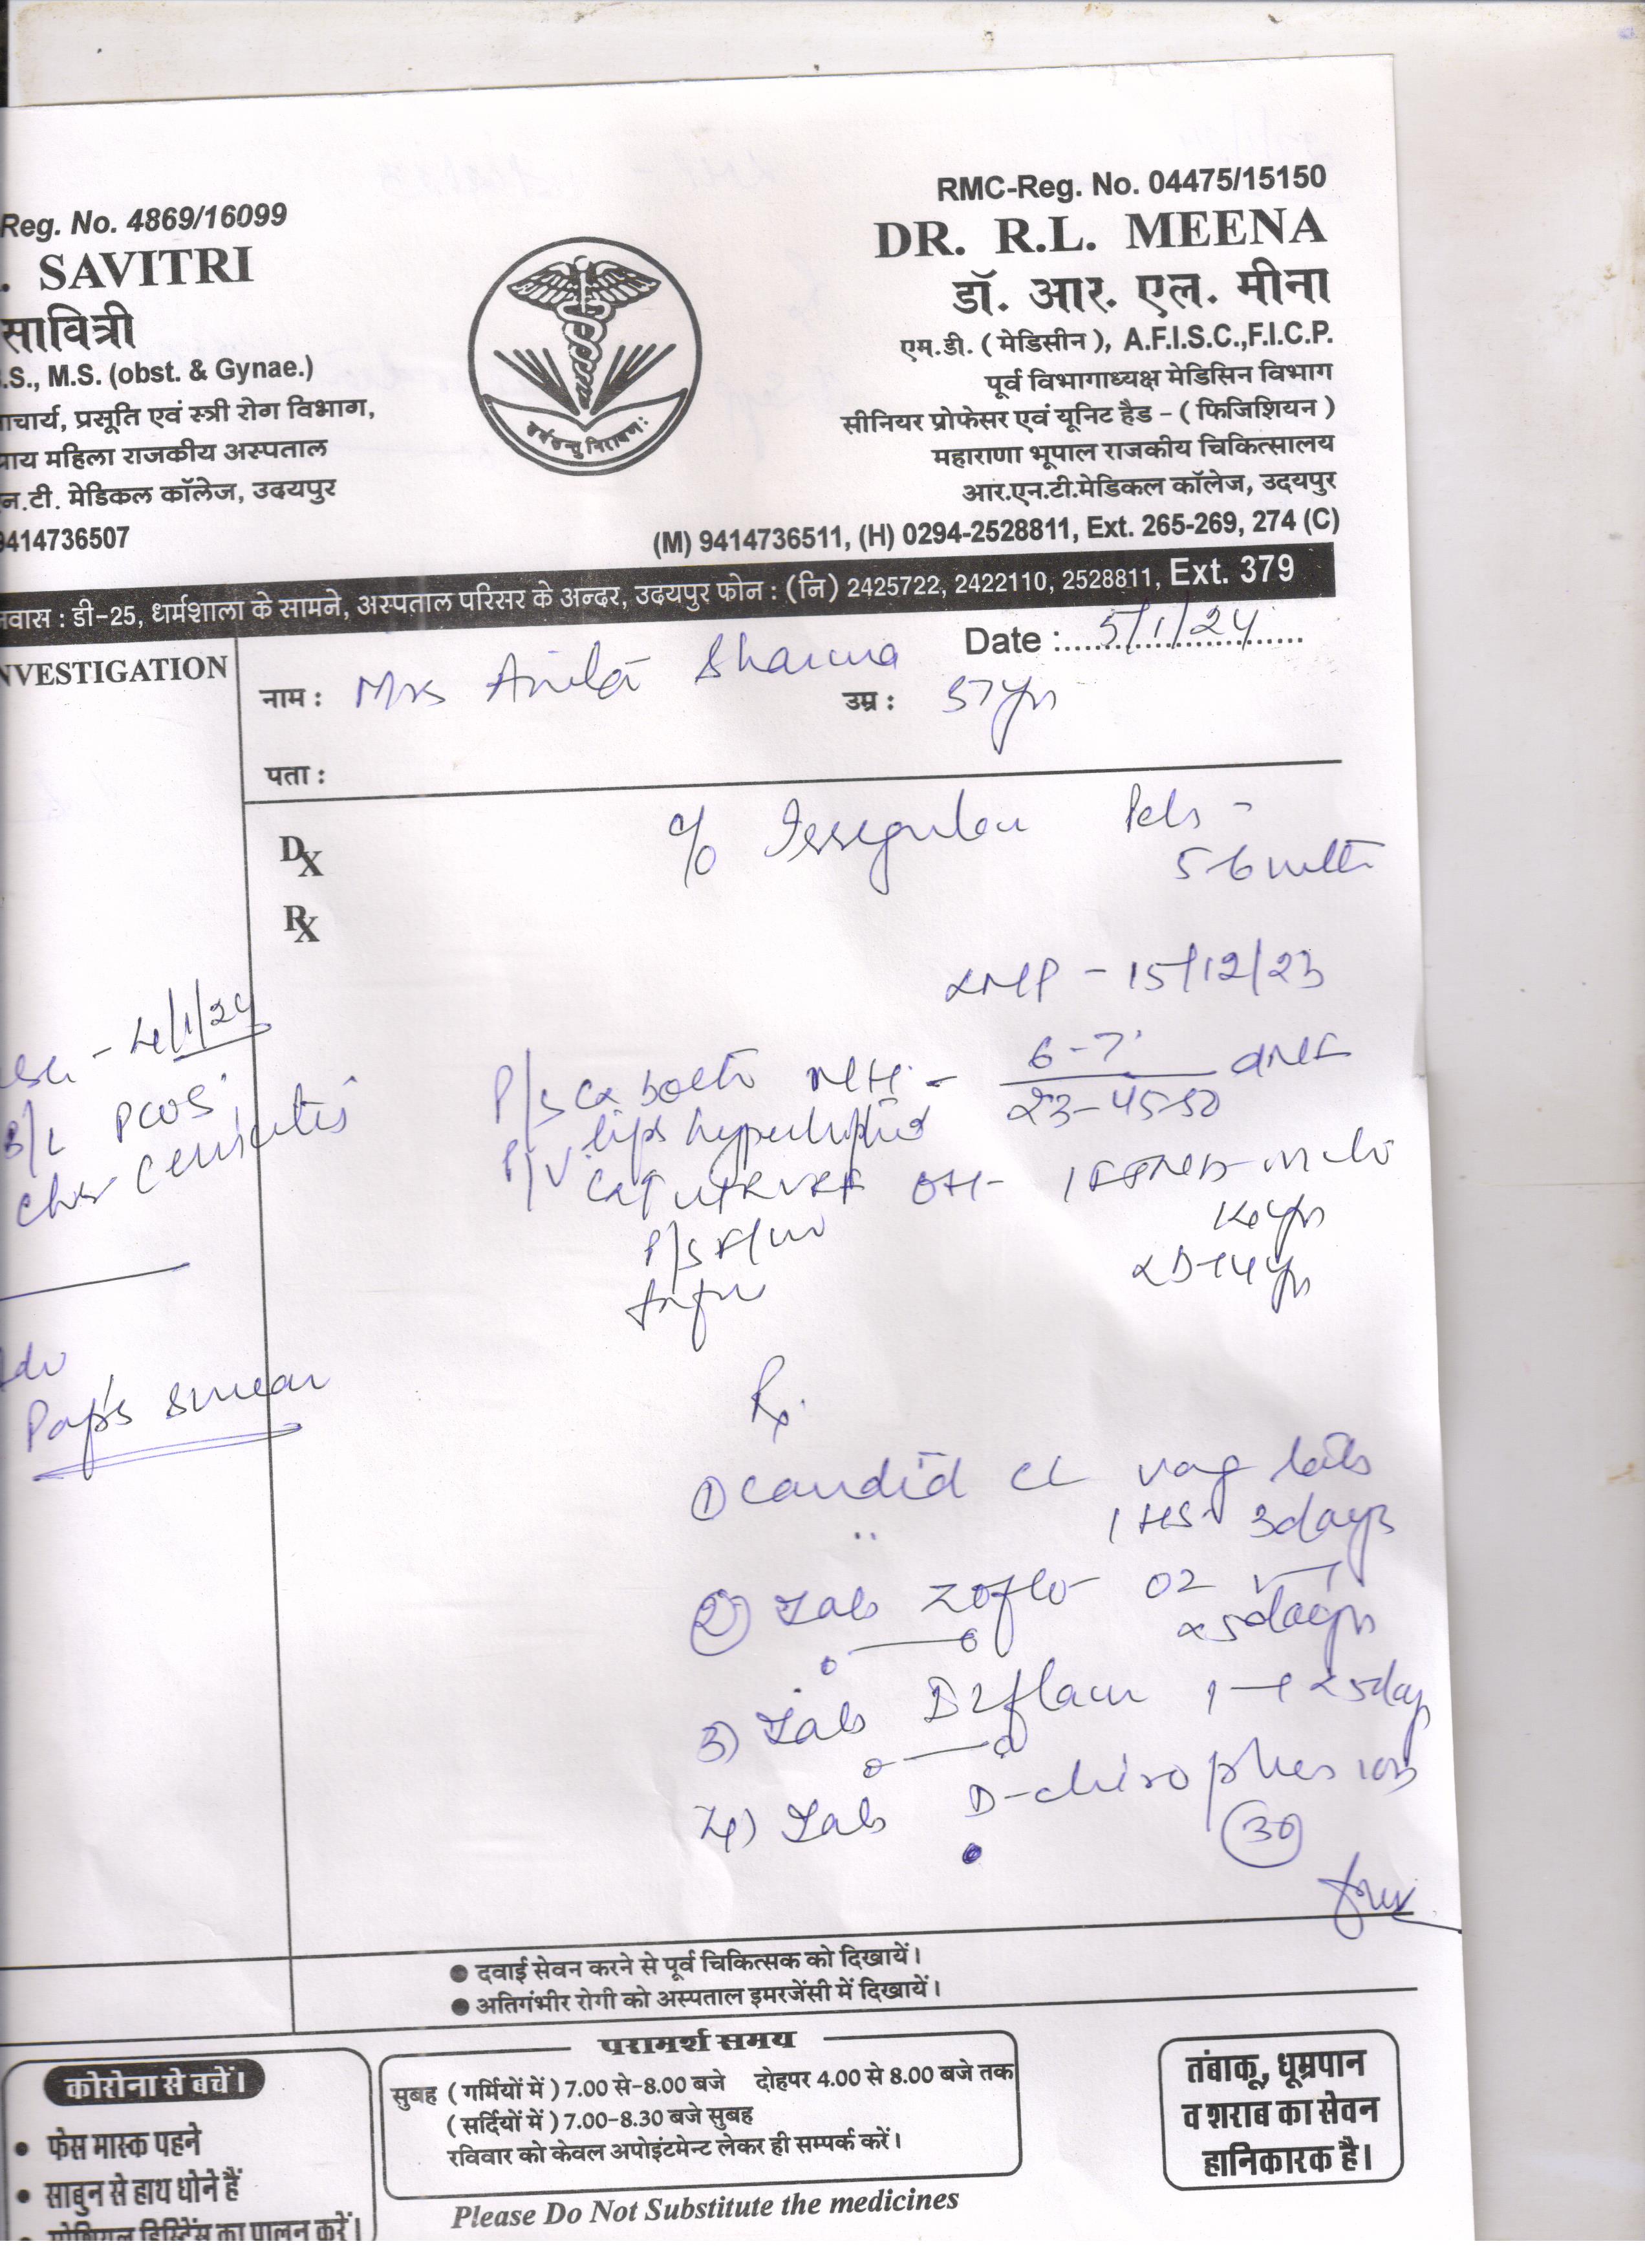 RMC-Reg. No. 04475/15150
Reg. No. 4869/16099
DR. R.L. MEENA
. SAVITRI
डॉ. आर. एल. मीना
सावित्री
एम.डी. ( मेडिसीन ), A.F.I.S.C.,F.I.C.P.
.S., M.S. (obst. & Gynae.)
पूर्व विभागाध्यक्ष मेडिसिन विभाग
ाचार्य, प्रसूति एवं स्त्री रोग विभाग,
सीनियर प्रोफेसर एवं यूनिट हैड - ( फिजिशियन )
महिला राजकीय अस्पताल
महाराणा भूपाल राजकीय चिकित्सालय
न.टी. मेडिकल कॉलेज, उदयपुर
आर.एन.टी.मेडिकल कॉलेज, उदयपुर
9414736507
(M) 9414736511, (H) 0294-2528811, Ext. 265-269, 274 (C)
वास : डी-25, धर्मशाला के सामने, अस्पताल परिसर के अन्दर, उदयपुर फोन : (नि) 2425722, 2422110, 2528811, Ext. 379
NVESTIGATION
Date : 5/1/24
नाम : Mrs Anita Sharma
उम्र : 37yrs
पता :
DX
c/o Irregular Pds -
5-6 mth
RX
LMP - 15/12/23
4/1/24
B/L PCOS
P/S Cx both MH - 6-7
23-45-50
lips hypertrophied
P/V
OH-
P/S
14yrs
Adv
Pap's smear
Rx
1) Candid CL vag tab
1 HS 3days
2) Tab Zoflo- OZ
x 5days
3) Tab 1-1 x 5day
4) Tab D-chiro
30
● दवाई सेवन करने से पूर्व चिकित्सक को दिखायें।
● अतिगंभीर रोगी को अस्पताल इमरजेंसी में दिखायें।
परामर्श समय
सुबह ( गर्मियों में ) 7.00 से-8.00 बजे दोहपर 4.00 से 8.00 बजे तक
( सर्दियों में ) 7.00-8.30 बजे सुबह
रविवार को केवल अपोइंटमेन्ट लेकर ही सम्पर्क करें।
कोरोना से बचें।
• फेस मास्क पहने
• साबुन से हाथ धोने हैं
• सोशियल डिस्टिेंस का पालन करें।
तंबाकू, धूम्रपान
व शराब का सेवन
हानिकारक है।
Please Do Not Substitute the medicines